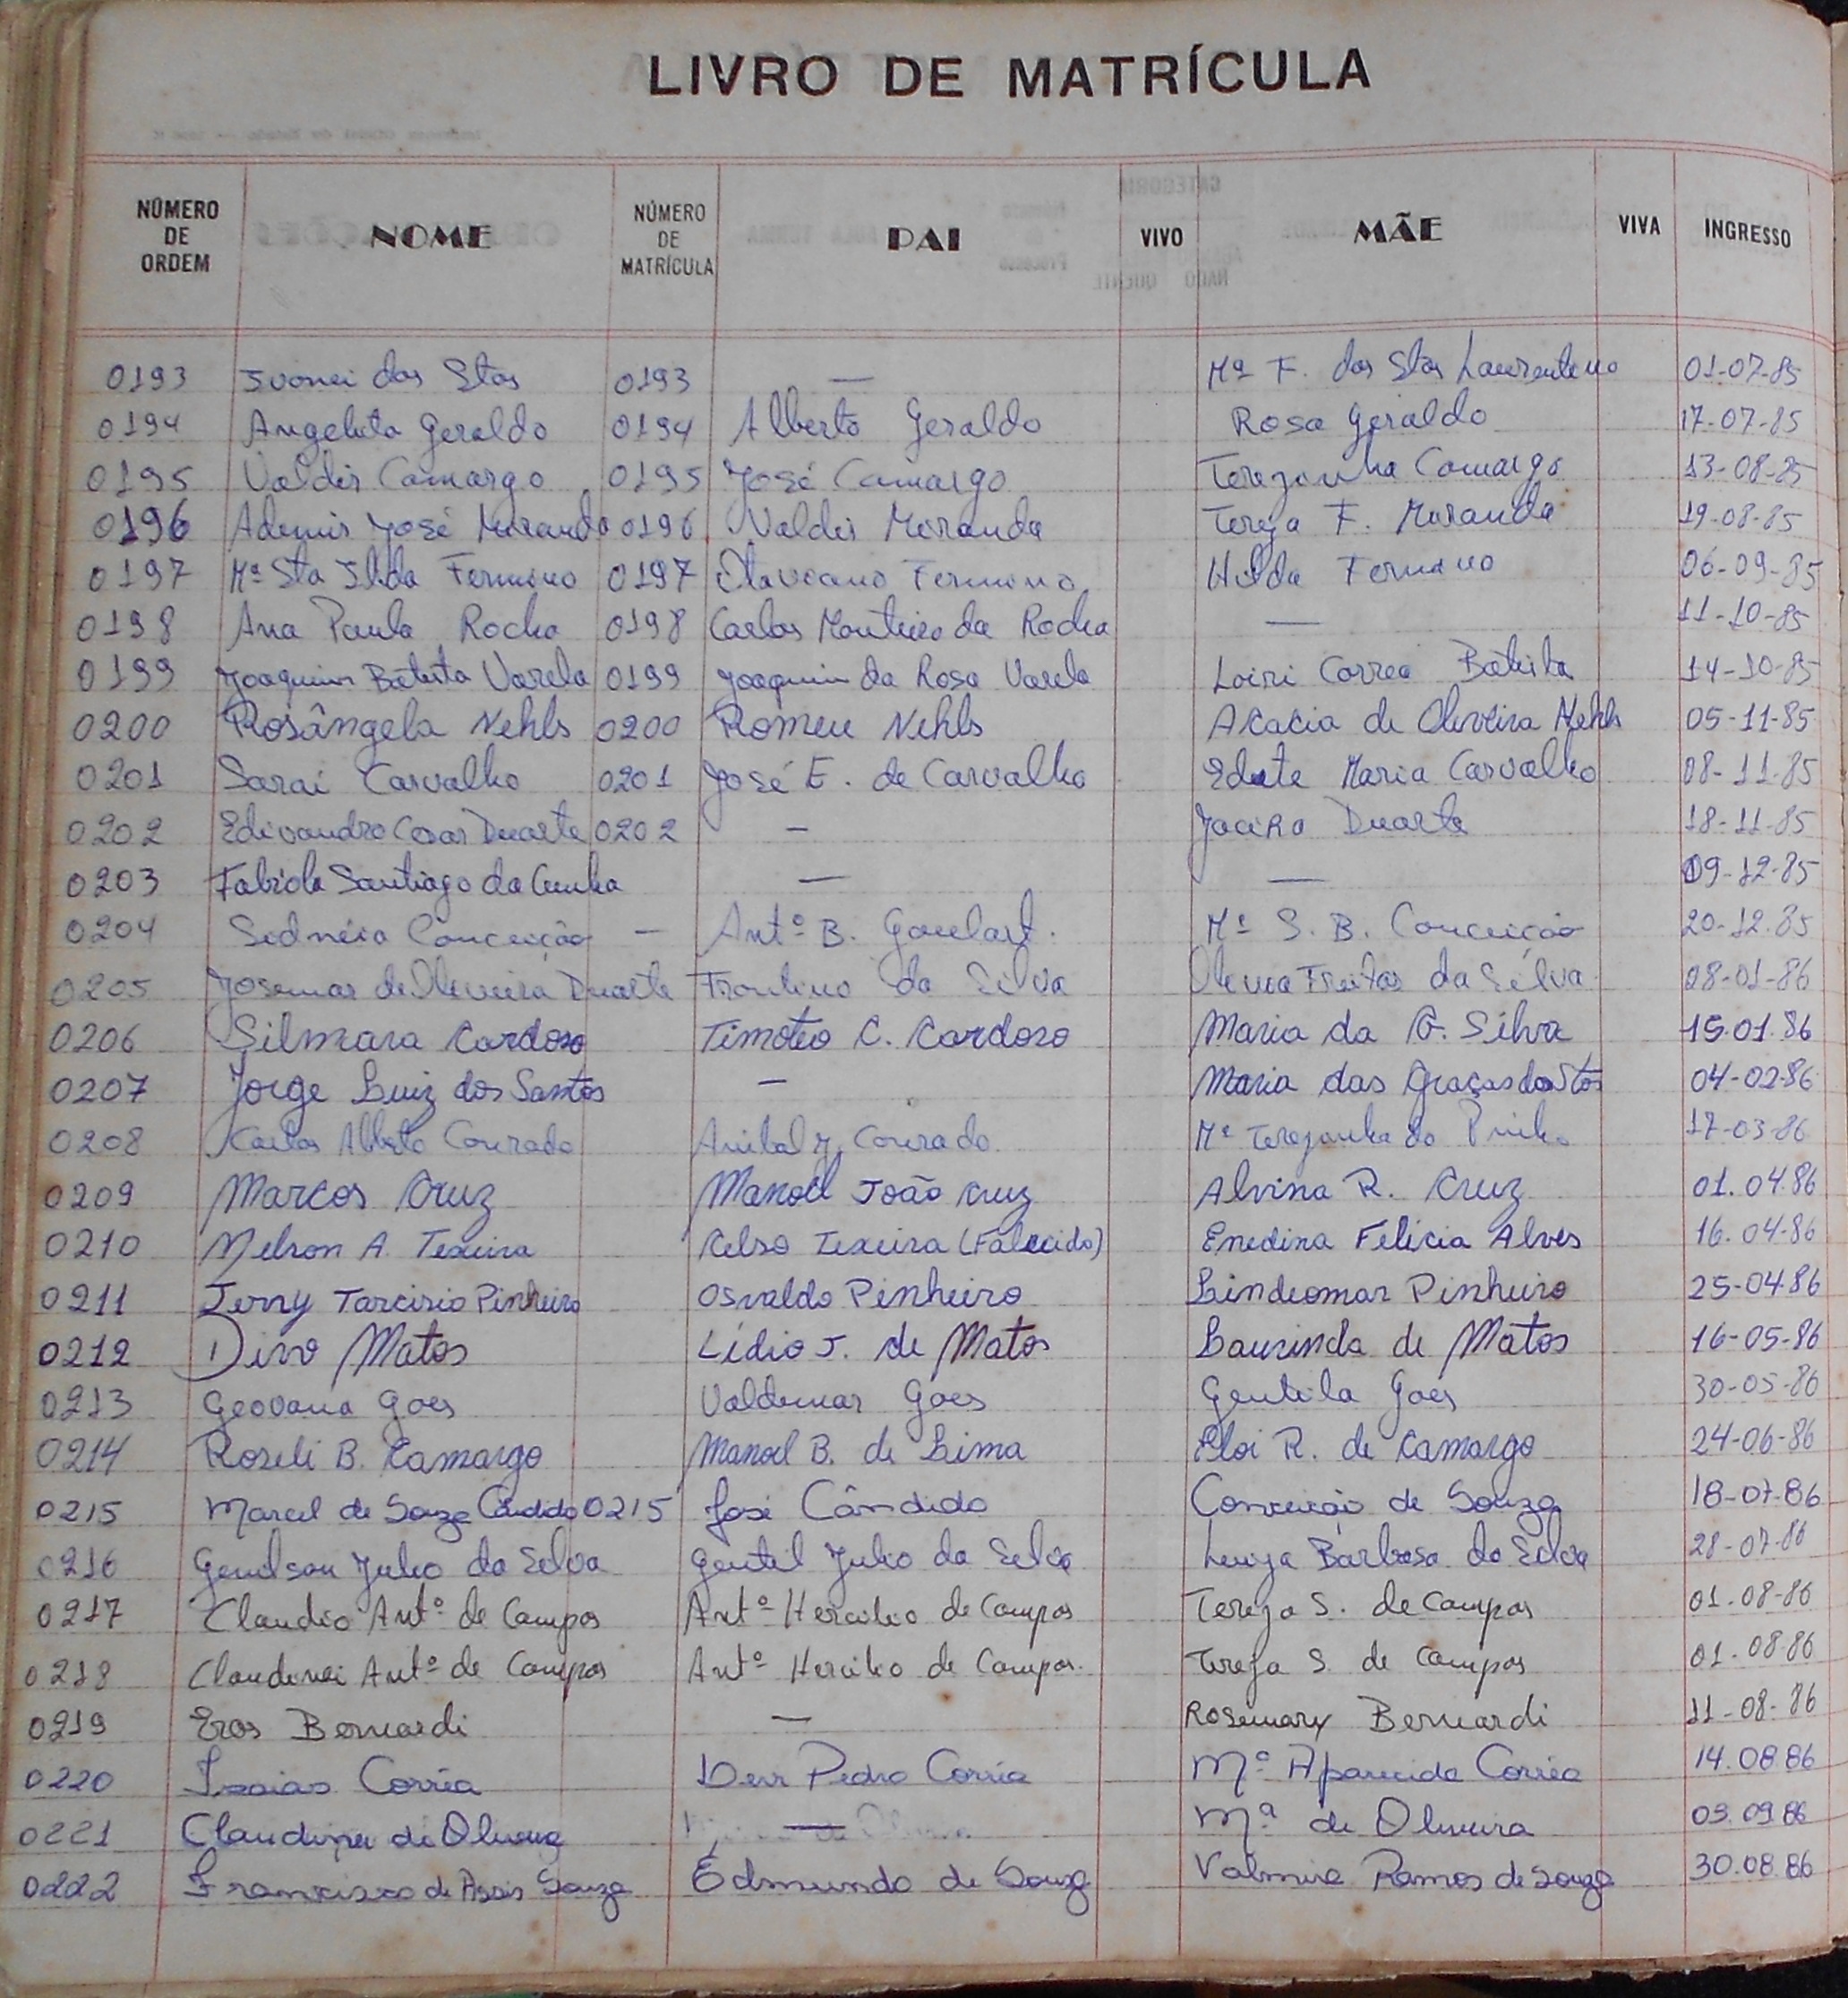 LIVRO DE MATRÍCULA
NÚMERO DE ORDEM NOME NÚMERO DE MATRÍCULA PAI VIVO MÃE VIVA INGRESSO
0193 Ivonei dos Stos 0193 — Mª F. dos Stos Laurentino 01-07-85
0194 Angelita Geraldo 0194 Alberto Geraldo Rosa Geraldo 17-07-85
0195 Valdir Camargo 0195 José Camargo Terezinha Camargo 13-08-85
0196 Ademir José Miranda 0196 Valdir Miranda Tereza F. Miranda 19-08-85
0197 Mª Sta Ilda Fermino 0197 Otaviano Fermino Hilda Fermino 06-09-85
0198 Ana Paula Rocha 0198 Carlos Monteiro da Rocha — 11-10-85
0199 Joaquim Batista Varela 0199 Joaquim da Rosa Varela Loiri Correa Batista 14-10-85
0200 Rosângela Nehls 0200 Romeu Nehls Acacia de Oliveira Nehls 05-11-85
0201 Sarai Carvalho 0201 José E. de Carvalho Edite Maria Carvalho 08-11-85
0202 Edivandro Cesar Duarte 0202 — Jacira Duarte 18-11-85
0203 Fabiola Santiago da Cunha — — 09-12-85
0204 Sidnéia Conceição — Antº B. Goulart. Mª S. B. Conceição 20-12-85
0205 Josemar de Oliveira Duarte Frontino da Silva Olivia Freitas da Silva 08-01-86
0206 Silmara Cardoso Timoteo C. Cardoso Maria da G. Silva 15.01.86
0207 Jorge Luiz dos Santos — Maria das Graças dos Stos 04-02-86
0208 Carlos Alberto Conrado Anibal J. Conrado Mª Terezinha do Pinho 17-03-86
0209 Marcos Cruz Manoel João Cruz Alvina R. Cruz 01.04.86
0210 Nelson A. Texeira Celso Texeira (Falecido) Enedina Felicia Alves 16.04-86
0211 Jerry Tarcisio Pinheiro Osvaldo Pinheiro Lindiomar Pinheiro 25-04.86
0212 Dino Matos Lídio J. de Matos Laurinda de Matos 16-05-86
0213 Geovana Goes Valdemar Goes Gentila Goes 30-05-86
0214 Roseli B. Camargo Manoel B. de Lima Eloi R. de Camargo 24-06-86
0215 Marcel de Souza Cândido 0215 José Cândido Conceição de Souza 18-07-86
0216 Genilson Julio da Silva Gentil Julio da Silva Luiza Barbosa da Silva 28-07-86
0217 Claudio Antº de Campos Antº Hercilio de Campos Tereza S. de Campos 01.08-86
0218 Claudinei Antº de Campos Antº Hercilio de Campos. Tereza S. de Campos 01.08.86
0219 Eros Bernardi — Rosemary Bernardi 11-08-86
0220 Isaias Corrêa Pedro Corrêa Mª Aparecida Corrêa 14.08.86
0221 Claudinei de Oliveira — Mª de Oliveira 03.09.86
0222 Francisco de Assis Souza Edmundo de Souza Valmira Ramos de Souza 30.08.86